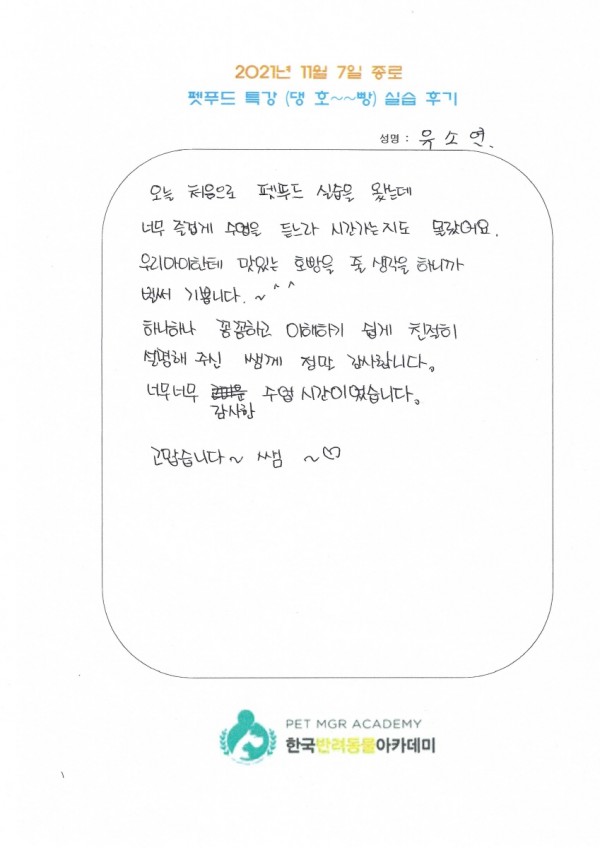 2021년 11월 7일 종로
펫푸드 특강 (댕 호~~빵) 실습 후기
성명 : 유소연.
오늘 처음으로 펫푸드 실습을 왔는데
너무 즐겁게 수업을 듣느라 시간가는지도 몰랐어요.
우리아이한테 맛있는 호빵을 줄 생각을 하니까
벌써 기쁩니다. ~ ^ ^
하나하나 꼼꼼하고 이해하기 쉽게 친절히
설명해 주신 쌤께 정말 감사합니다.
너무너무 수업 시간이였습니다.
감사한
고맙습니다~ 쌤 ~♡
PET MGR ACADEMY
한국반려동물아카데미